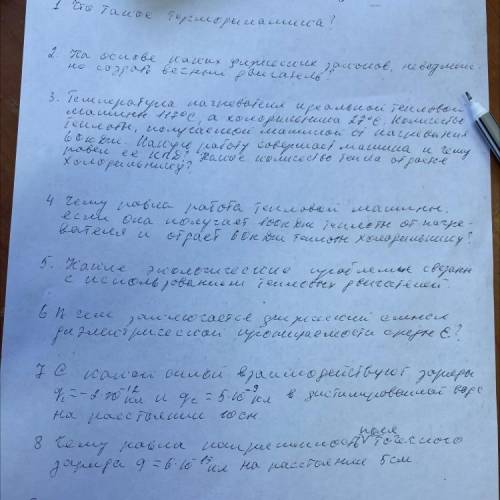 1 Что такое термодинамика?
2. На основе каких физических законов, невозмож-
но создать вечный двигатель?
3. Температура нагревателя идеальной тепловой
машины 117°С, а холодильника 27°С. Количество
теплоты, получаемой машиной от нагревателя
60 кДж. Какую работу совершает машина и чему
равен её КПД? Какое количество тепла отдает
холодильнику?
4 Чему равна работа тепловой машины,
если она получает 100 кДж теплоты от нагре-
вателя и отдает 60 кДж теплоты холодильнику?
5. Какие экологические проблемы связаны
с использованием тепловых двигателей.
6 В чем заключается физический смысл
диэлектрической проницаемости среды Ɛ?
7 С какой силой взаимодействуют заряды
кл и q₂ = 5·10⁻⁹ кл в дистилированной воде
на расстоянии 10см
8 Чему равна напряженность поля точечного
заряда кл на расстояние 5см